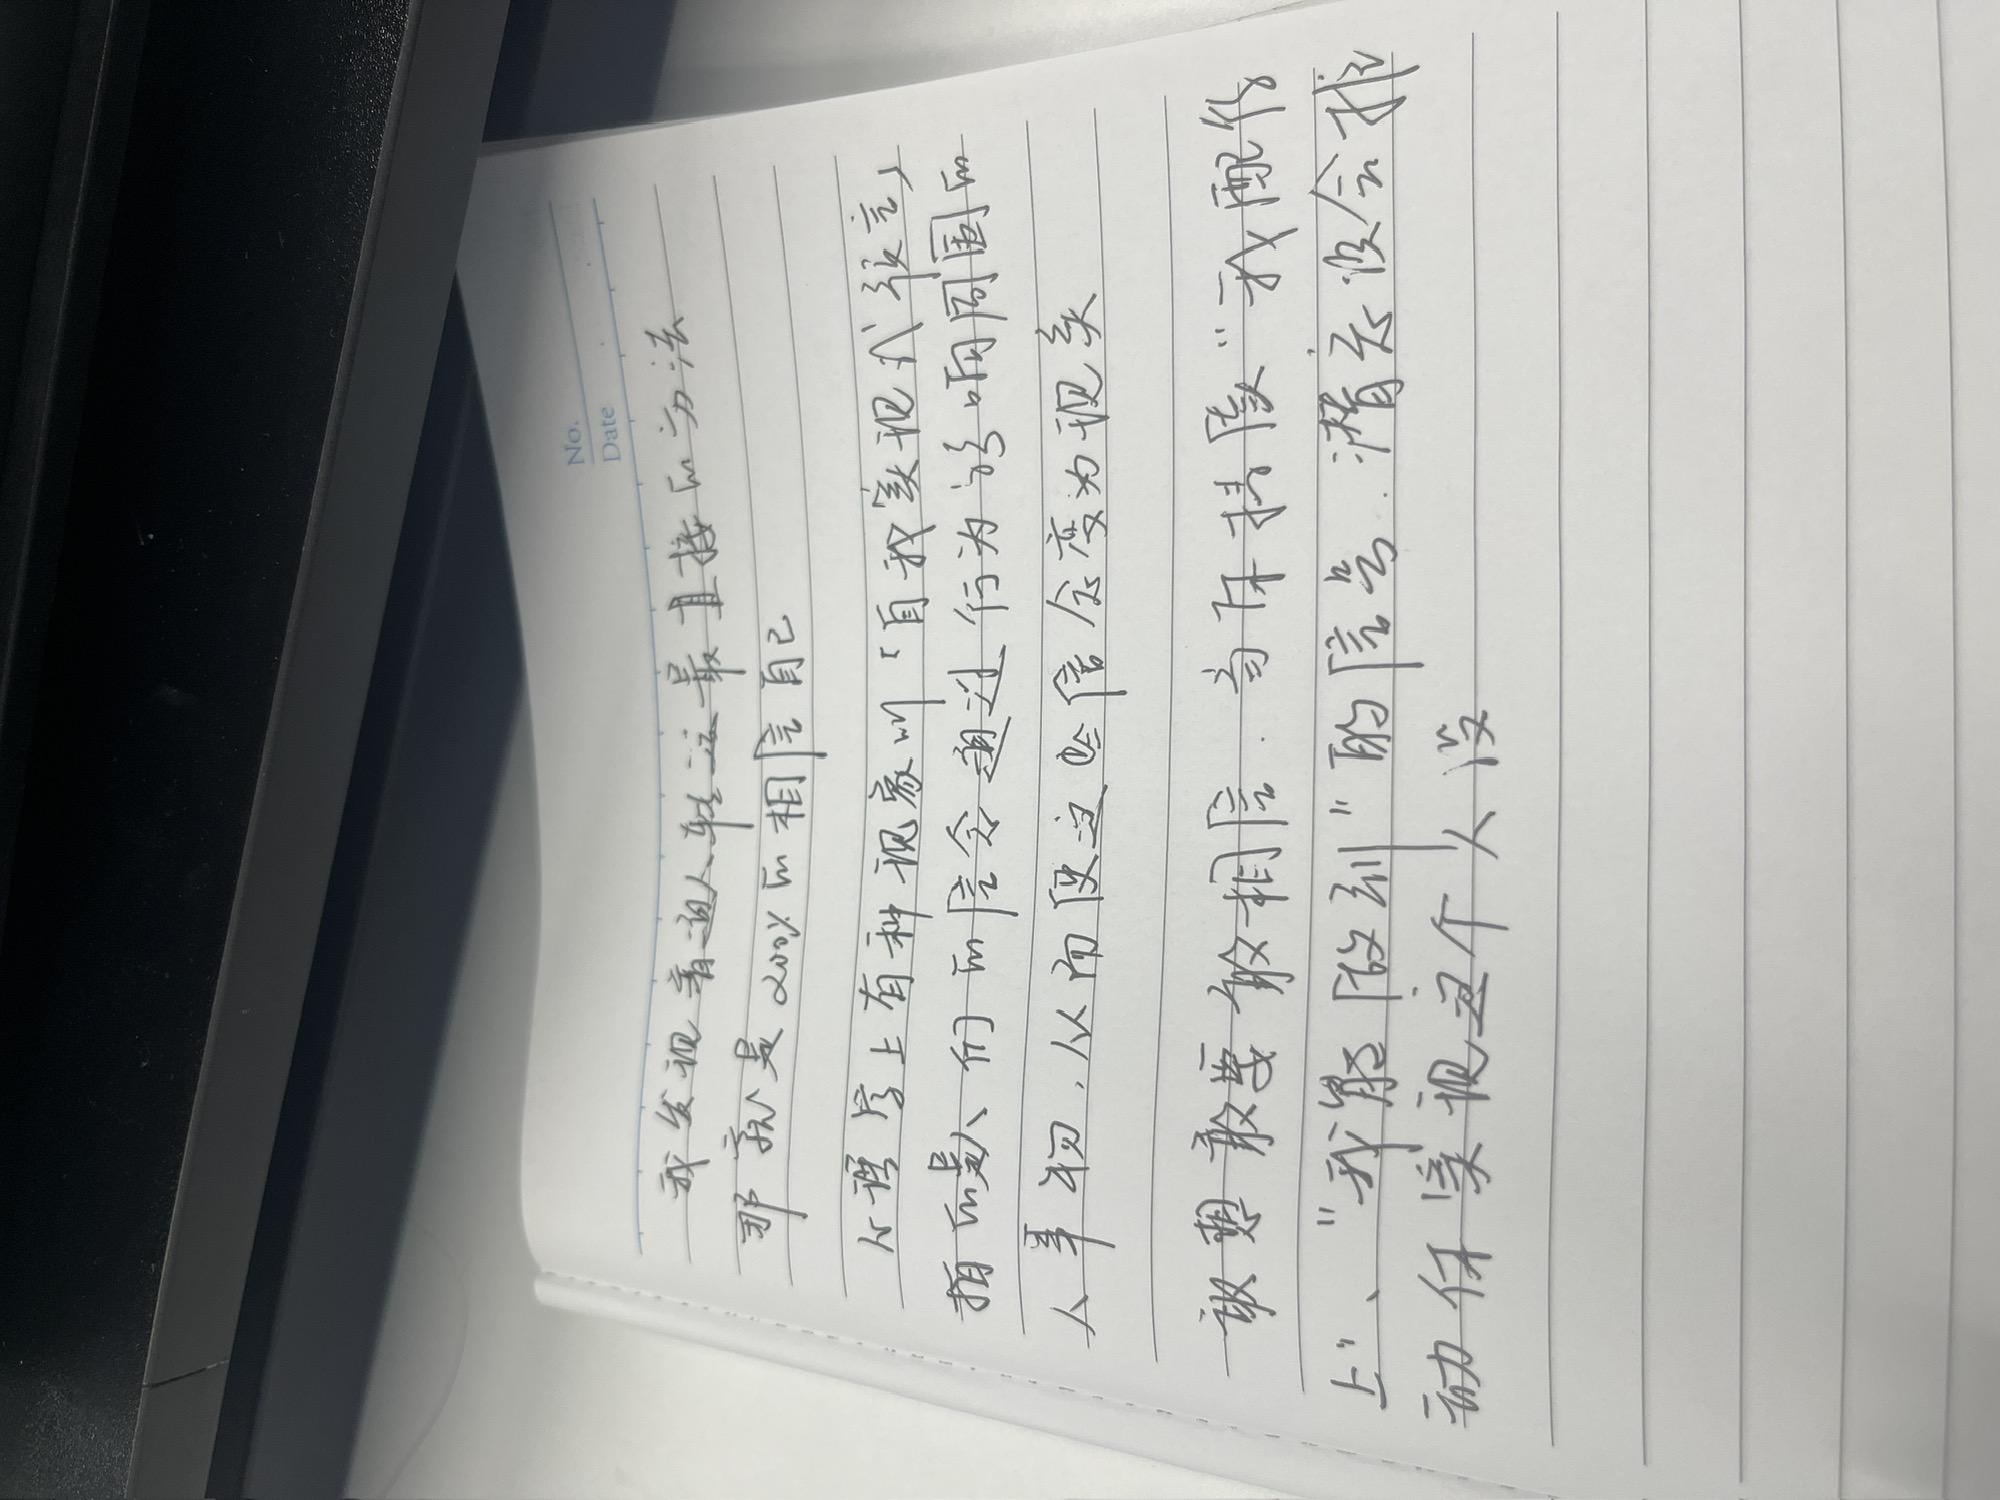 No.
Date
我发现普通人转运最直接的方法
那就是200%的相信自己
心理学上有种现象叫「自我实现式预言」
指的是人们的信念通过行为影响周围的
人事物,从而使这些信念变为现实
敢想敢要敢相信.当你持续"我配得
上"、"我能做到"的信号.潜意识会推
动你实现这个人设